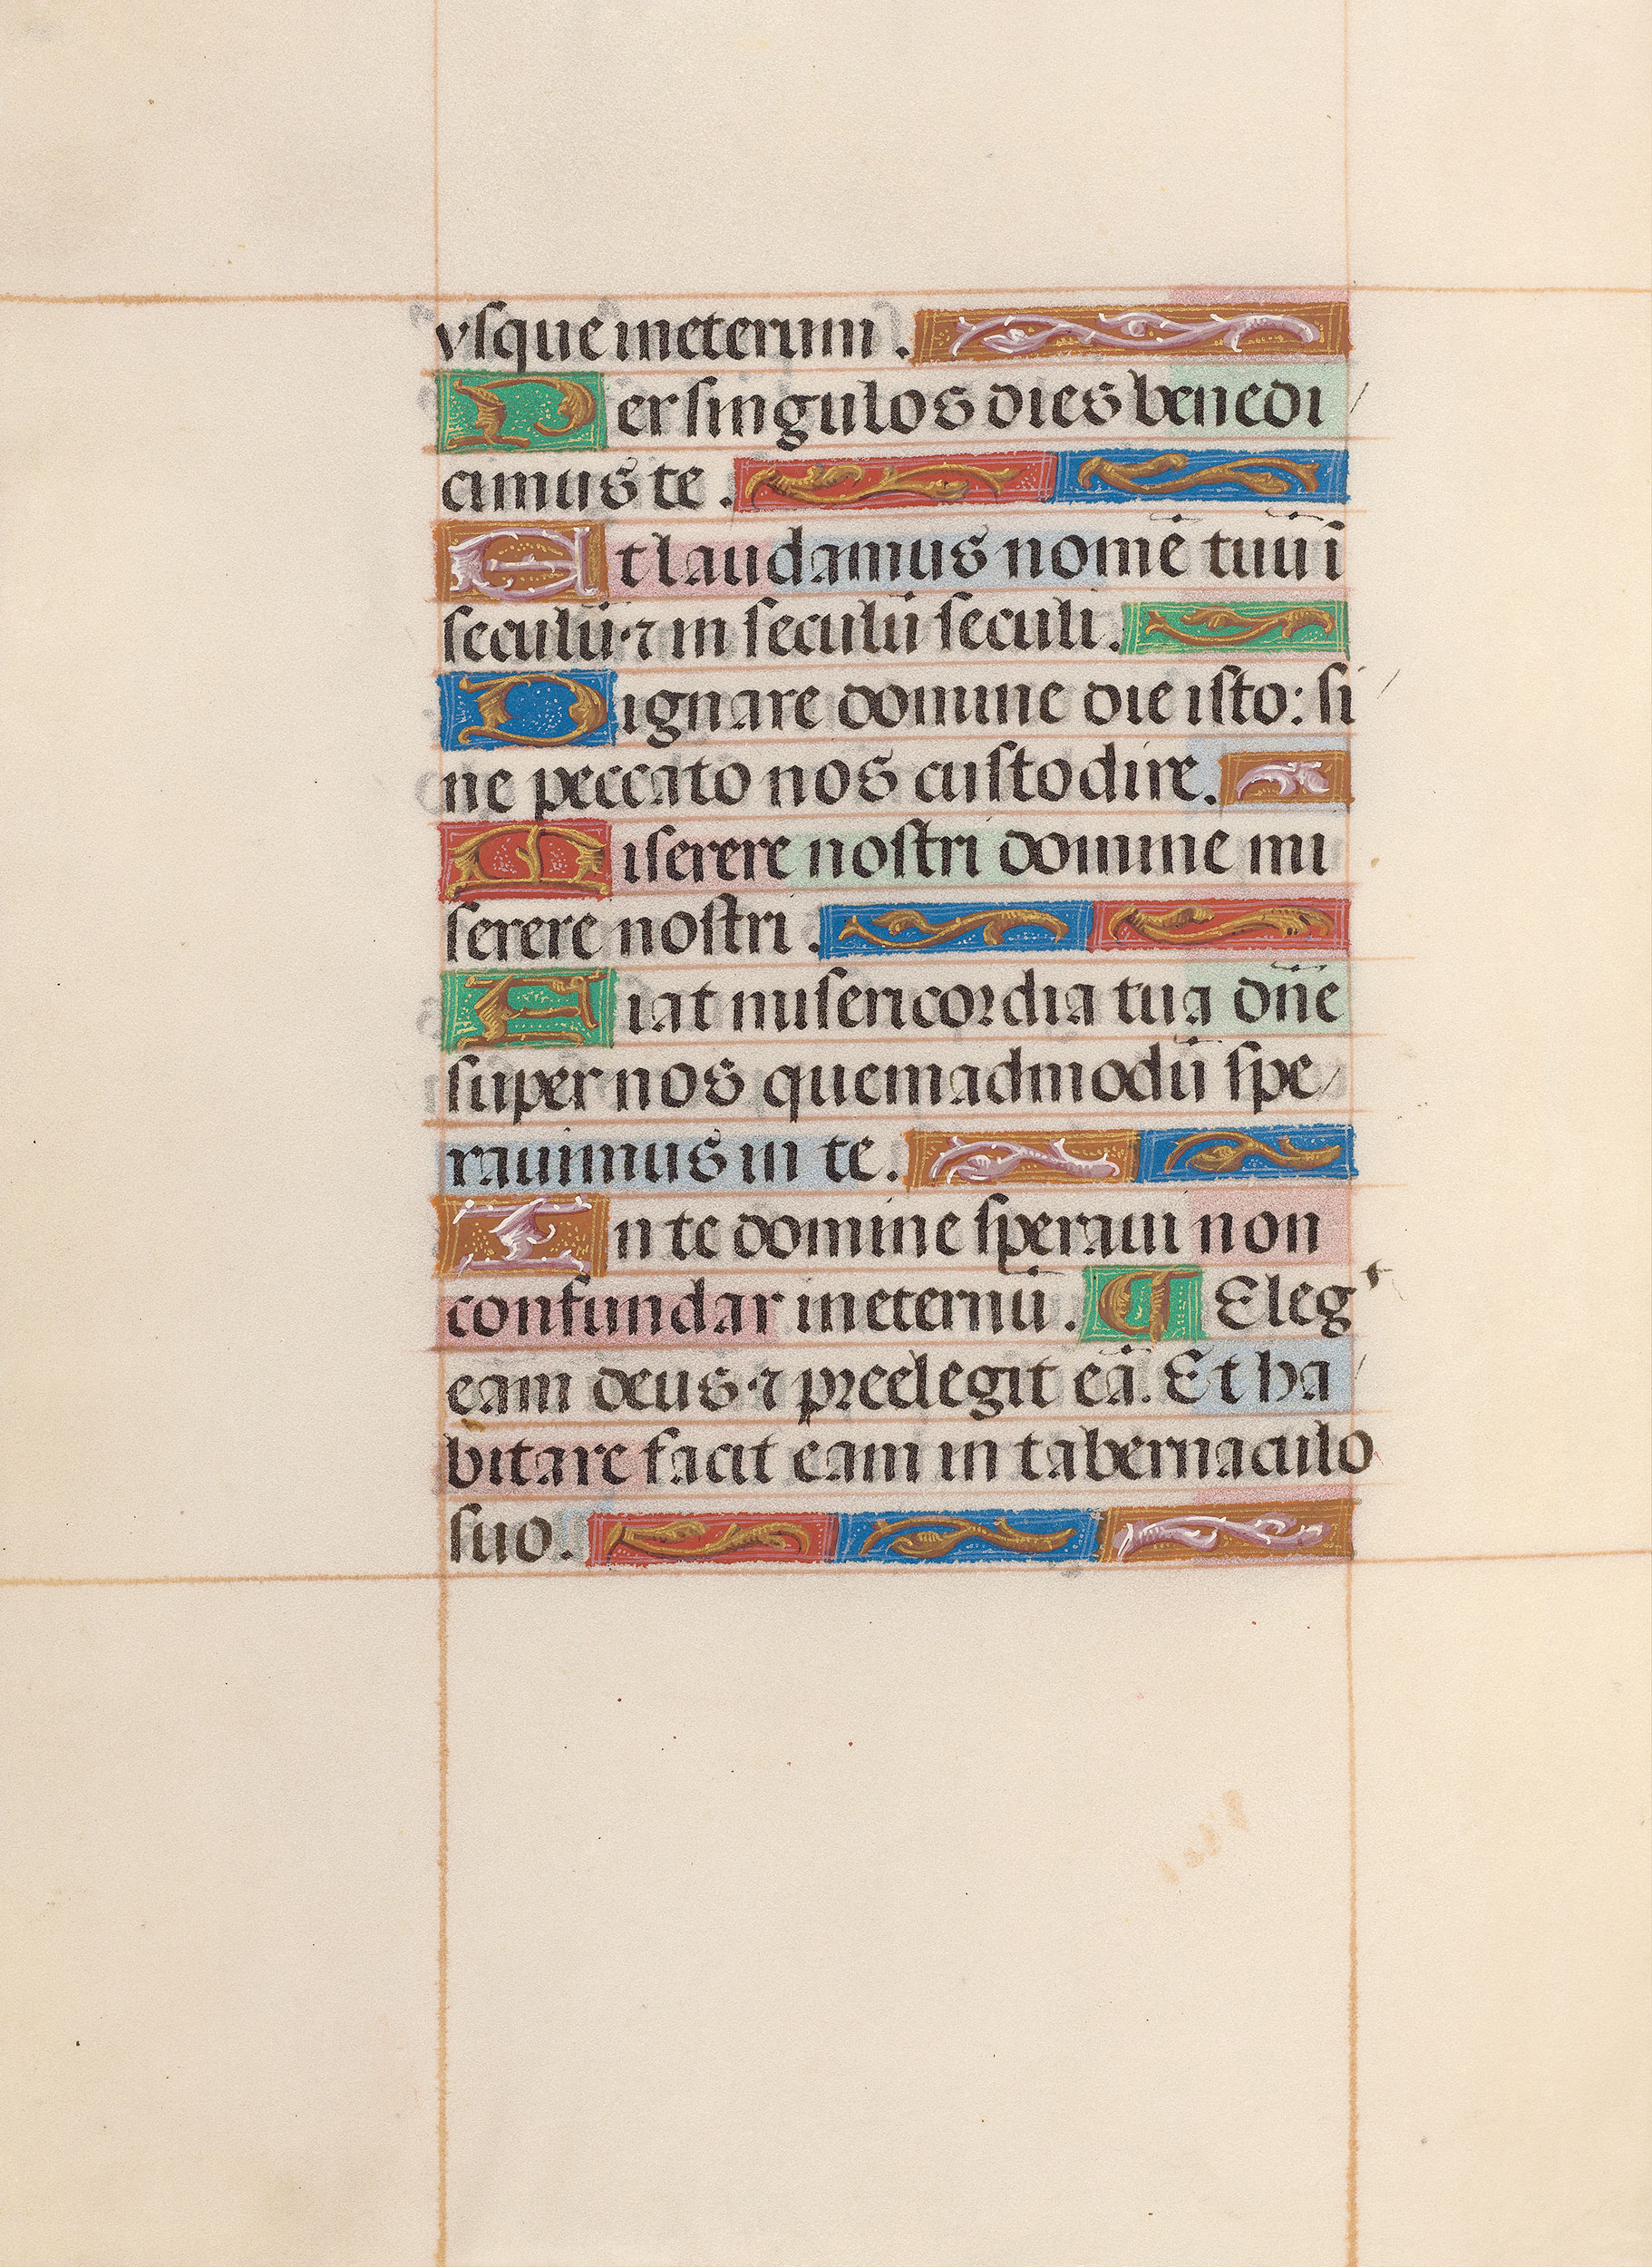 vsque ineternum .
Per singulos dies benedi
cimus te .
Et laudamus nomē tuū ī
seculū · ⁊ in seculū seculi .
Dignare domine die isto : si
ne peccato nos custodire .
Miserere nostri domine mi
serere nostri .
Fiat misericordia tua dn̄e
super nos quemadmodū spe
rauimus in te .
In te domine speraui non
confundar ineternū . ¶ Elegᵗ
eam deus · ⁊ preelegit eā . Et ha
bitare facit eam in tabernaculo
suo .